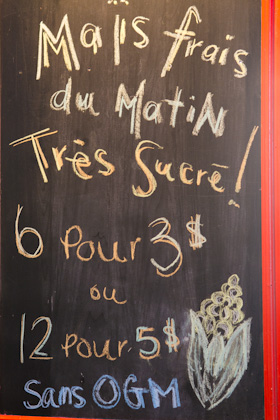 Maïs frais
du Matin
Très Sucré!
6 pour 3$
ou
12 pour 5$
Sans OGM